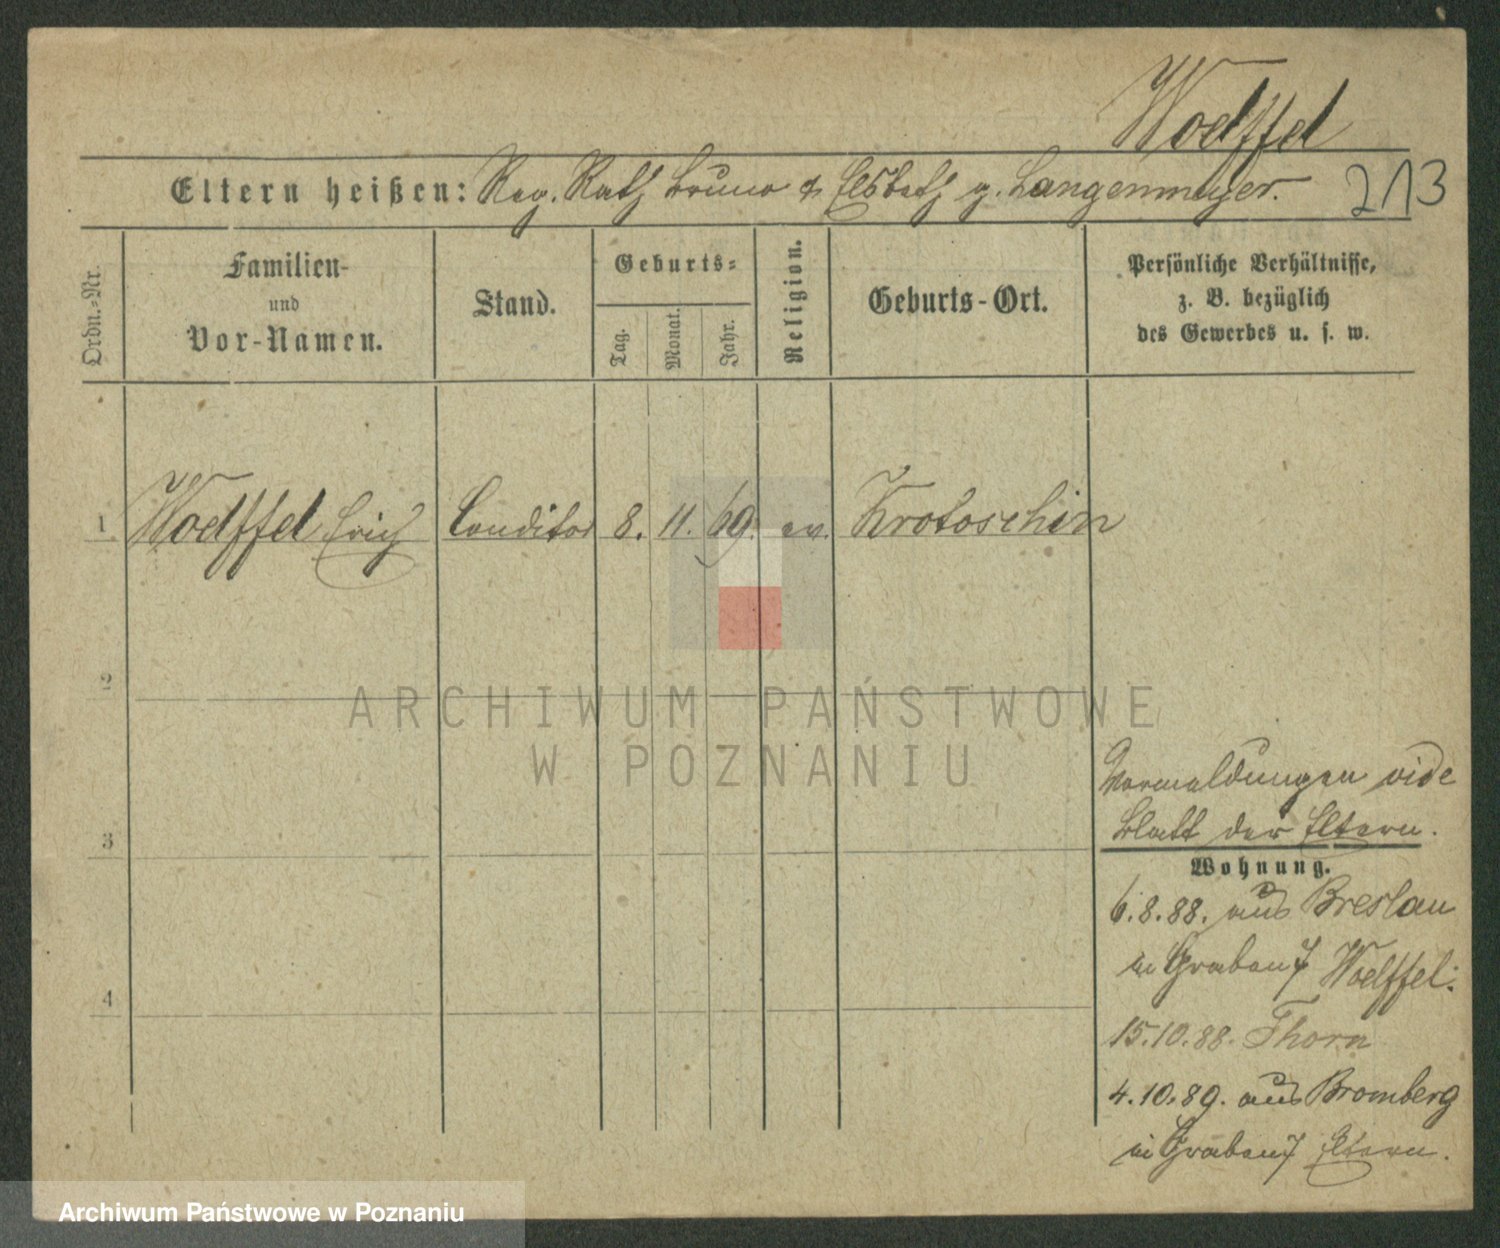 Woelffel
Eltern heißen: Reg. Rath Bruno & Elsbeth g. Langenmayer.
213
Ordn.-Nr.
Familien-
und
Vor-Namen.
Stand.
Geburts-
Tag.
Monat.
Jahr.
Religion.
Geburts-Ort.
Persönliche Verhältnisse,
z. B. bezüglich
des Gewerbes u. s. w.
1 Woelffel Erich Conditor 8. 11. 69. ev. Krotoschin
2
ARCHIWUM PAŃSTWOWE
W POZNANIU
Vermeldungen vide
Blatt der Eltern.
3
Wohnung.
6.8.88. aus Breslau
in Graben 7 Woelffel.
4
15.10.88. Thorn
4.10.89. aus Bromberg
in Graben 7 Eltern.
Archiwum Państwowe w Poznaniu